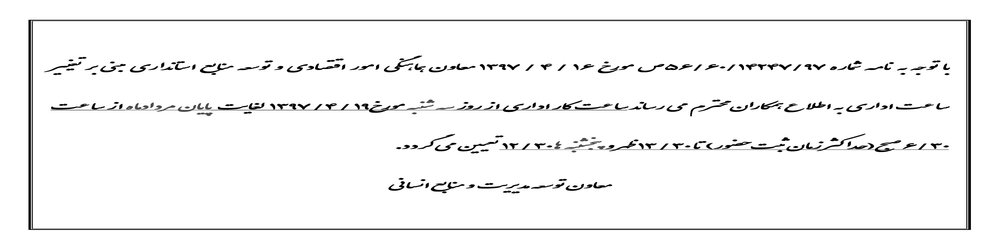 با توجه به نامه شماره ۵۶/۶۰/۱۴۳۴۷/۹۷ص مورخ ۱۳۹۷/۴/۱۶ معاون هماهنگی امور اقتصادی و توسعه منابع استانداری مبنی بر تغییر
ساعت اداری به اطلاع همکاران محترم می رساند ساعت کار اداری از روز سه شنبه مورخ ۱۳۹۷/۴/۱۹ لغایت پایان مردادماه از ساعت
۶/۳۰ صبح (حداکثر زمان ثبت حضور) تا ۱۳/۳۰ ظهر و پنجشنبه تا ۱۲/۳۰ تعیین می گردد.
معاون توسعه مدیریت و منابع انسانی